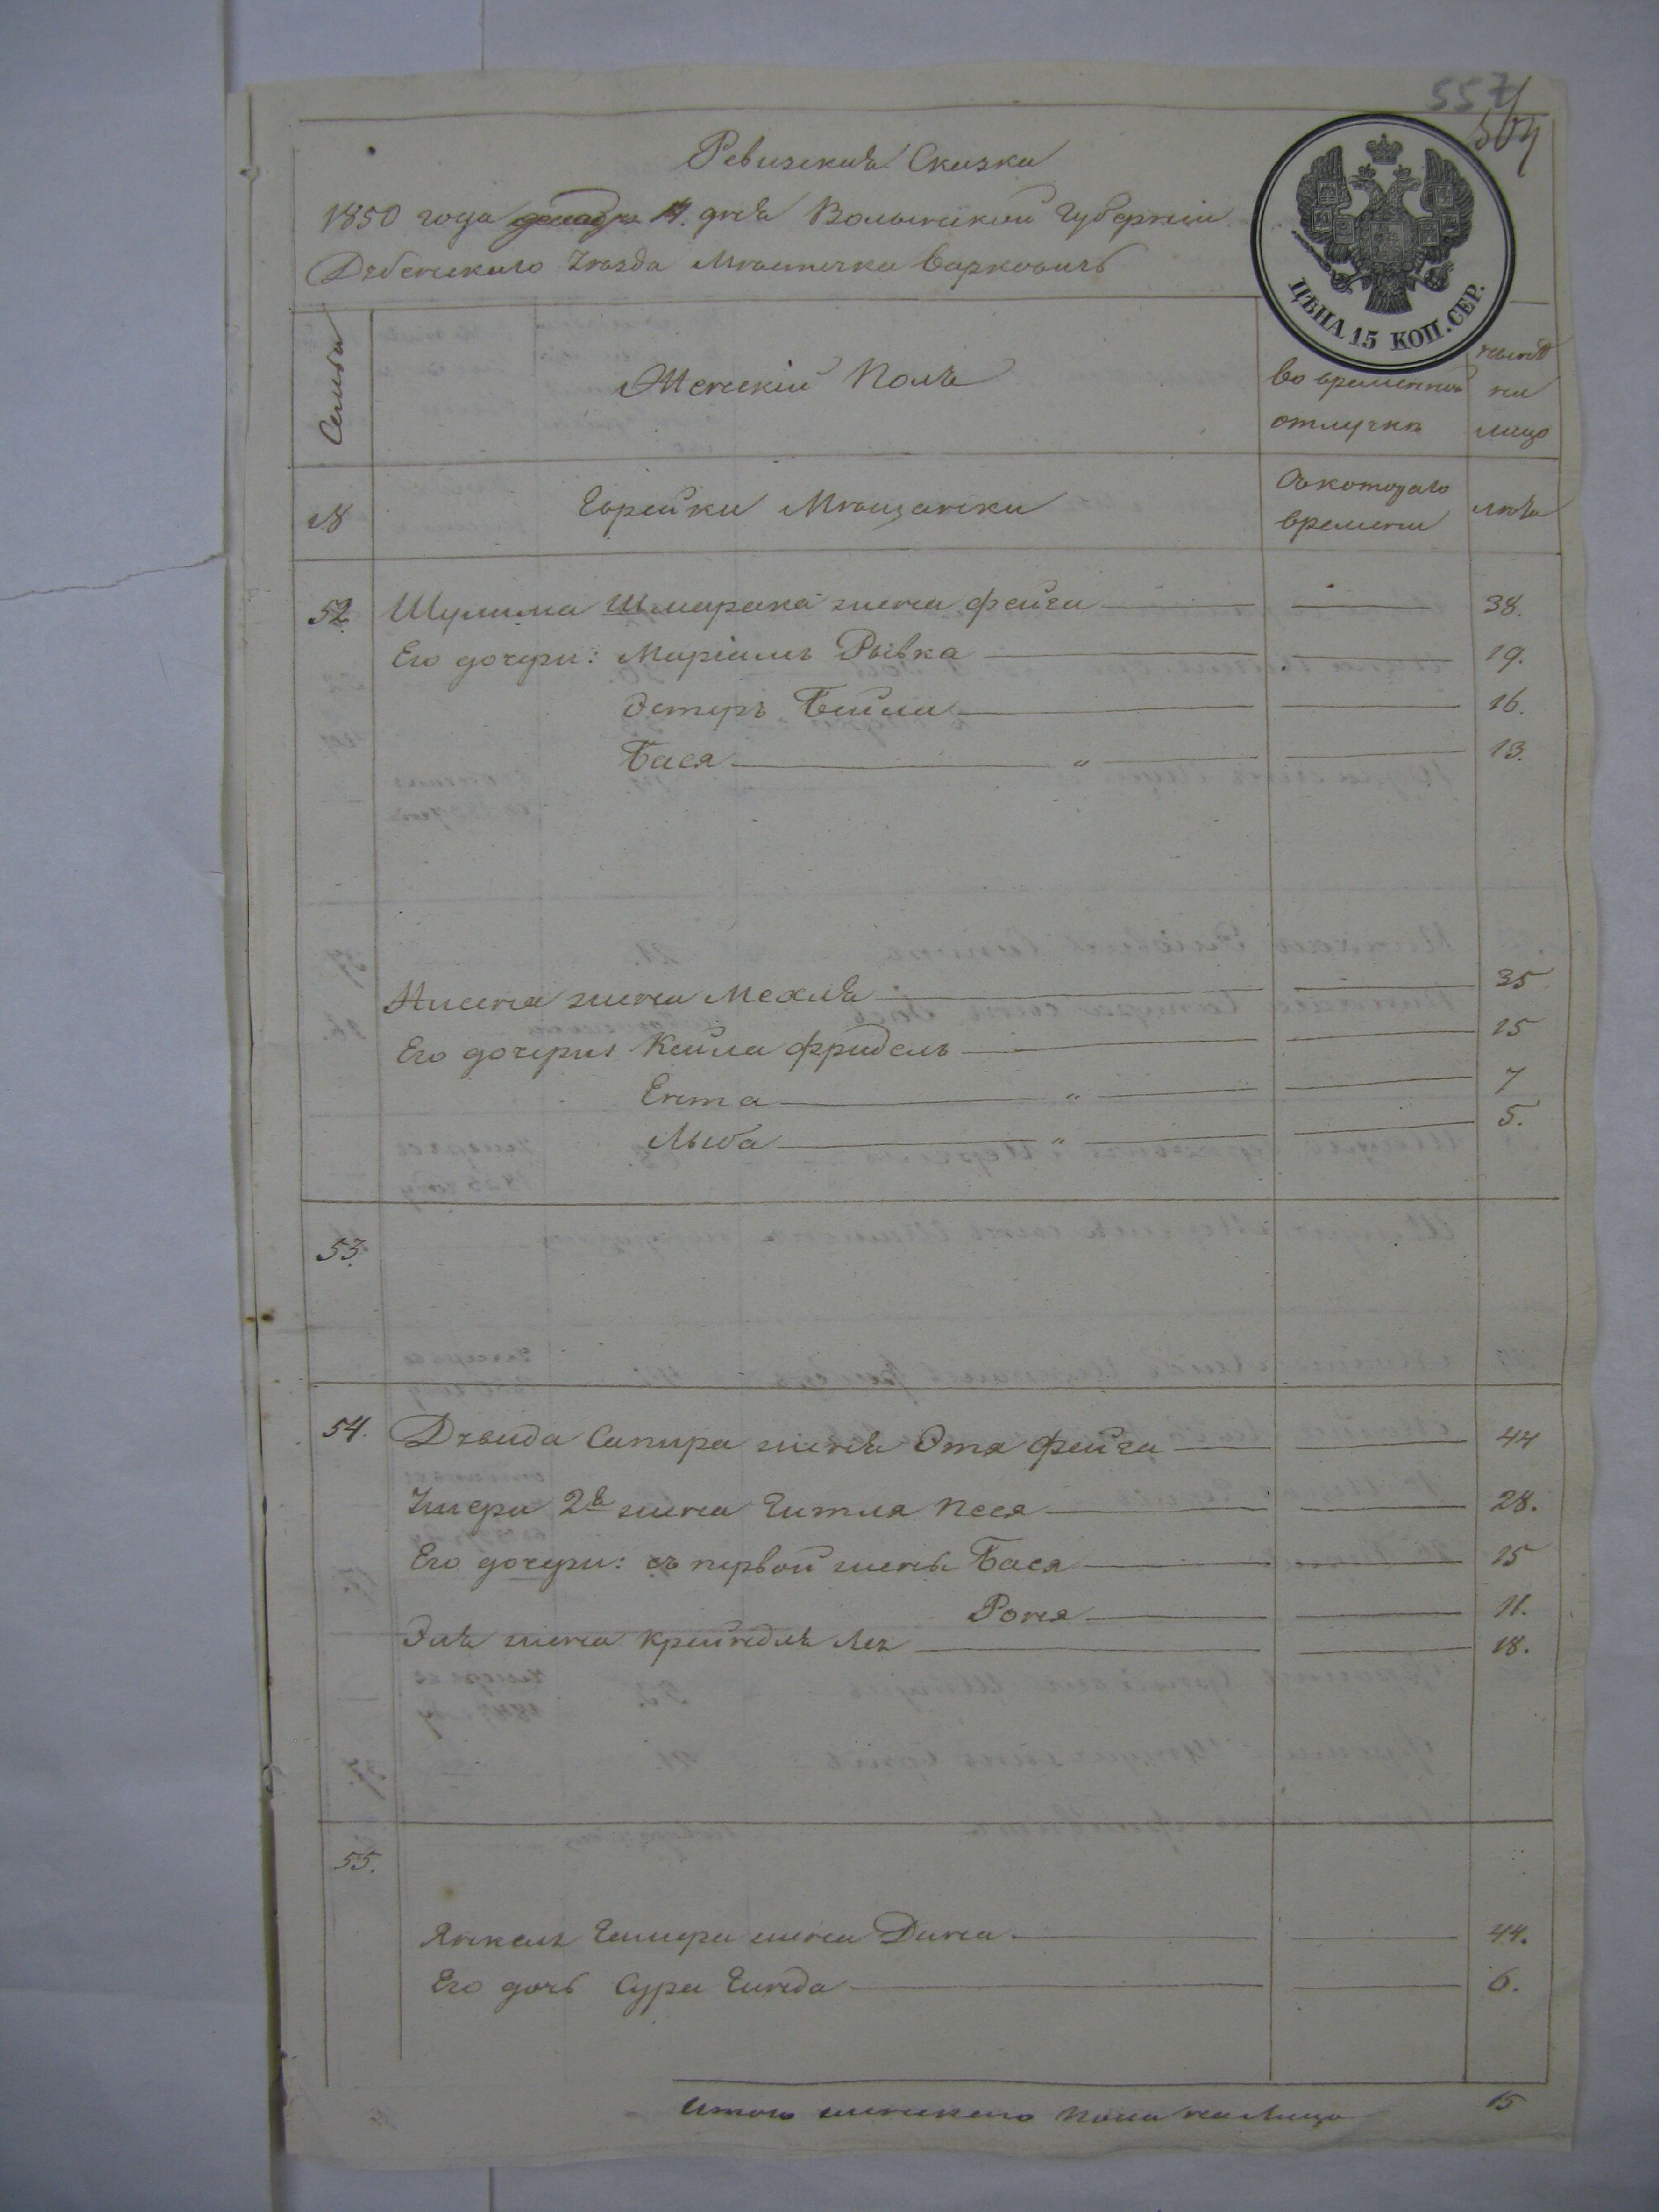 557
Ревизская Сказка
1850 года 14. дня Волынской Губерніи
Дубенскаго Уезда Местечка Варковичь
ЦѢНА 15 КОП. СЕР.
Семья
Женскій Полъ
Во временной отлучкѣ
на лицо
№
Еврейки Мещанки
Съ котораго времени
лѣта
52. Шулима Шмарака жена Фейга 38.
Его дочери: Маріамъ Рывка 19.
Эстеръ Бейла 16.
Бася " 13.
жена Мехля 35
Его дочери: Кейла Фридель 15
Ента " 7
Лыба " 5.
53.
54. Давида Сапира жена Этя Фейга 44
2я жена Гитля Песя 28.
Его дочери: съ первой жены Бася 15
Роня 11.
жена Крейндля Лея 18.
55.
Янкель жена Дина 44.
Его дочь Сура Гинда 6.
Итого женскаго пола на лицо 15